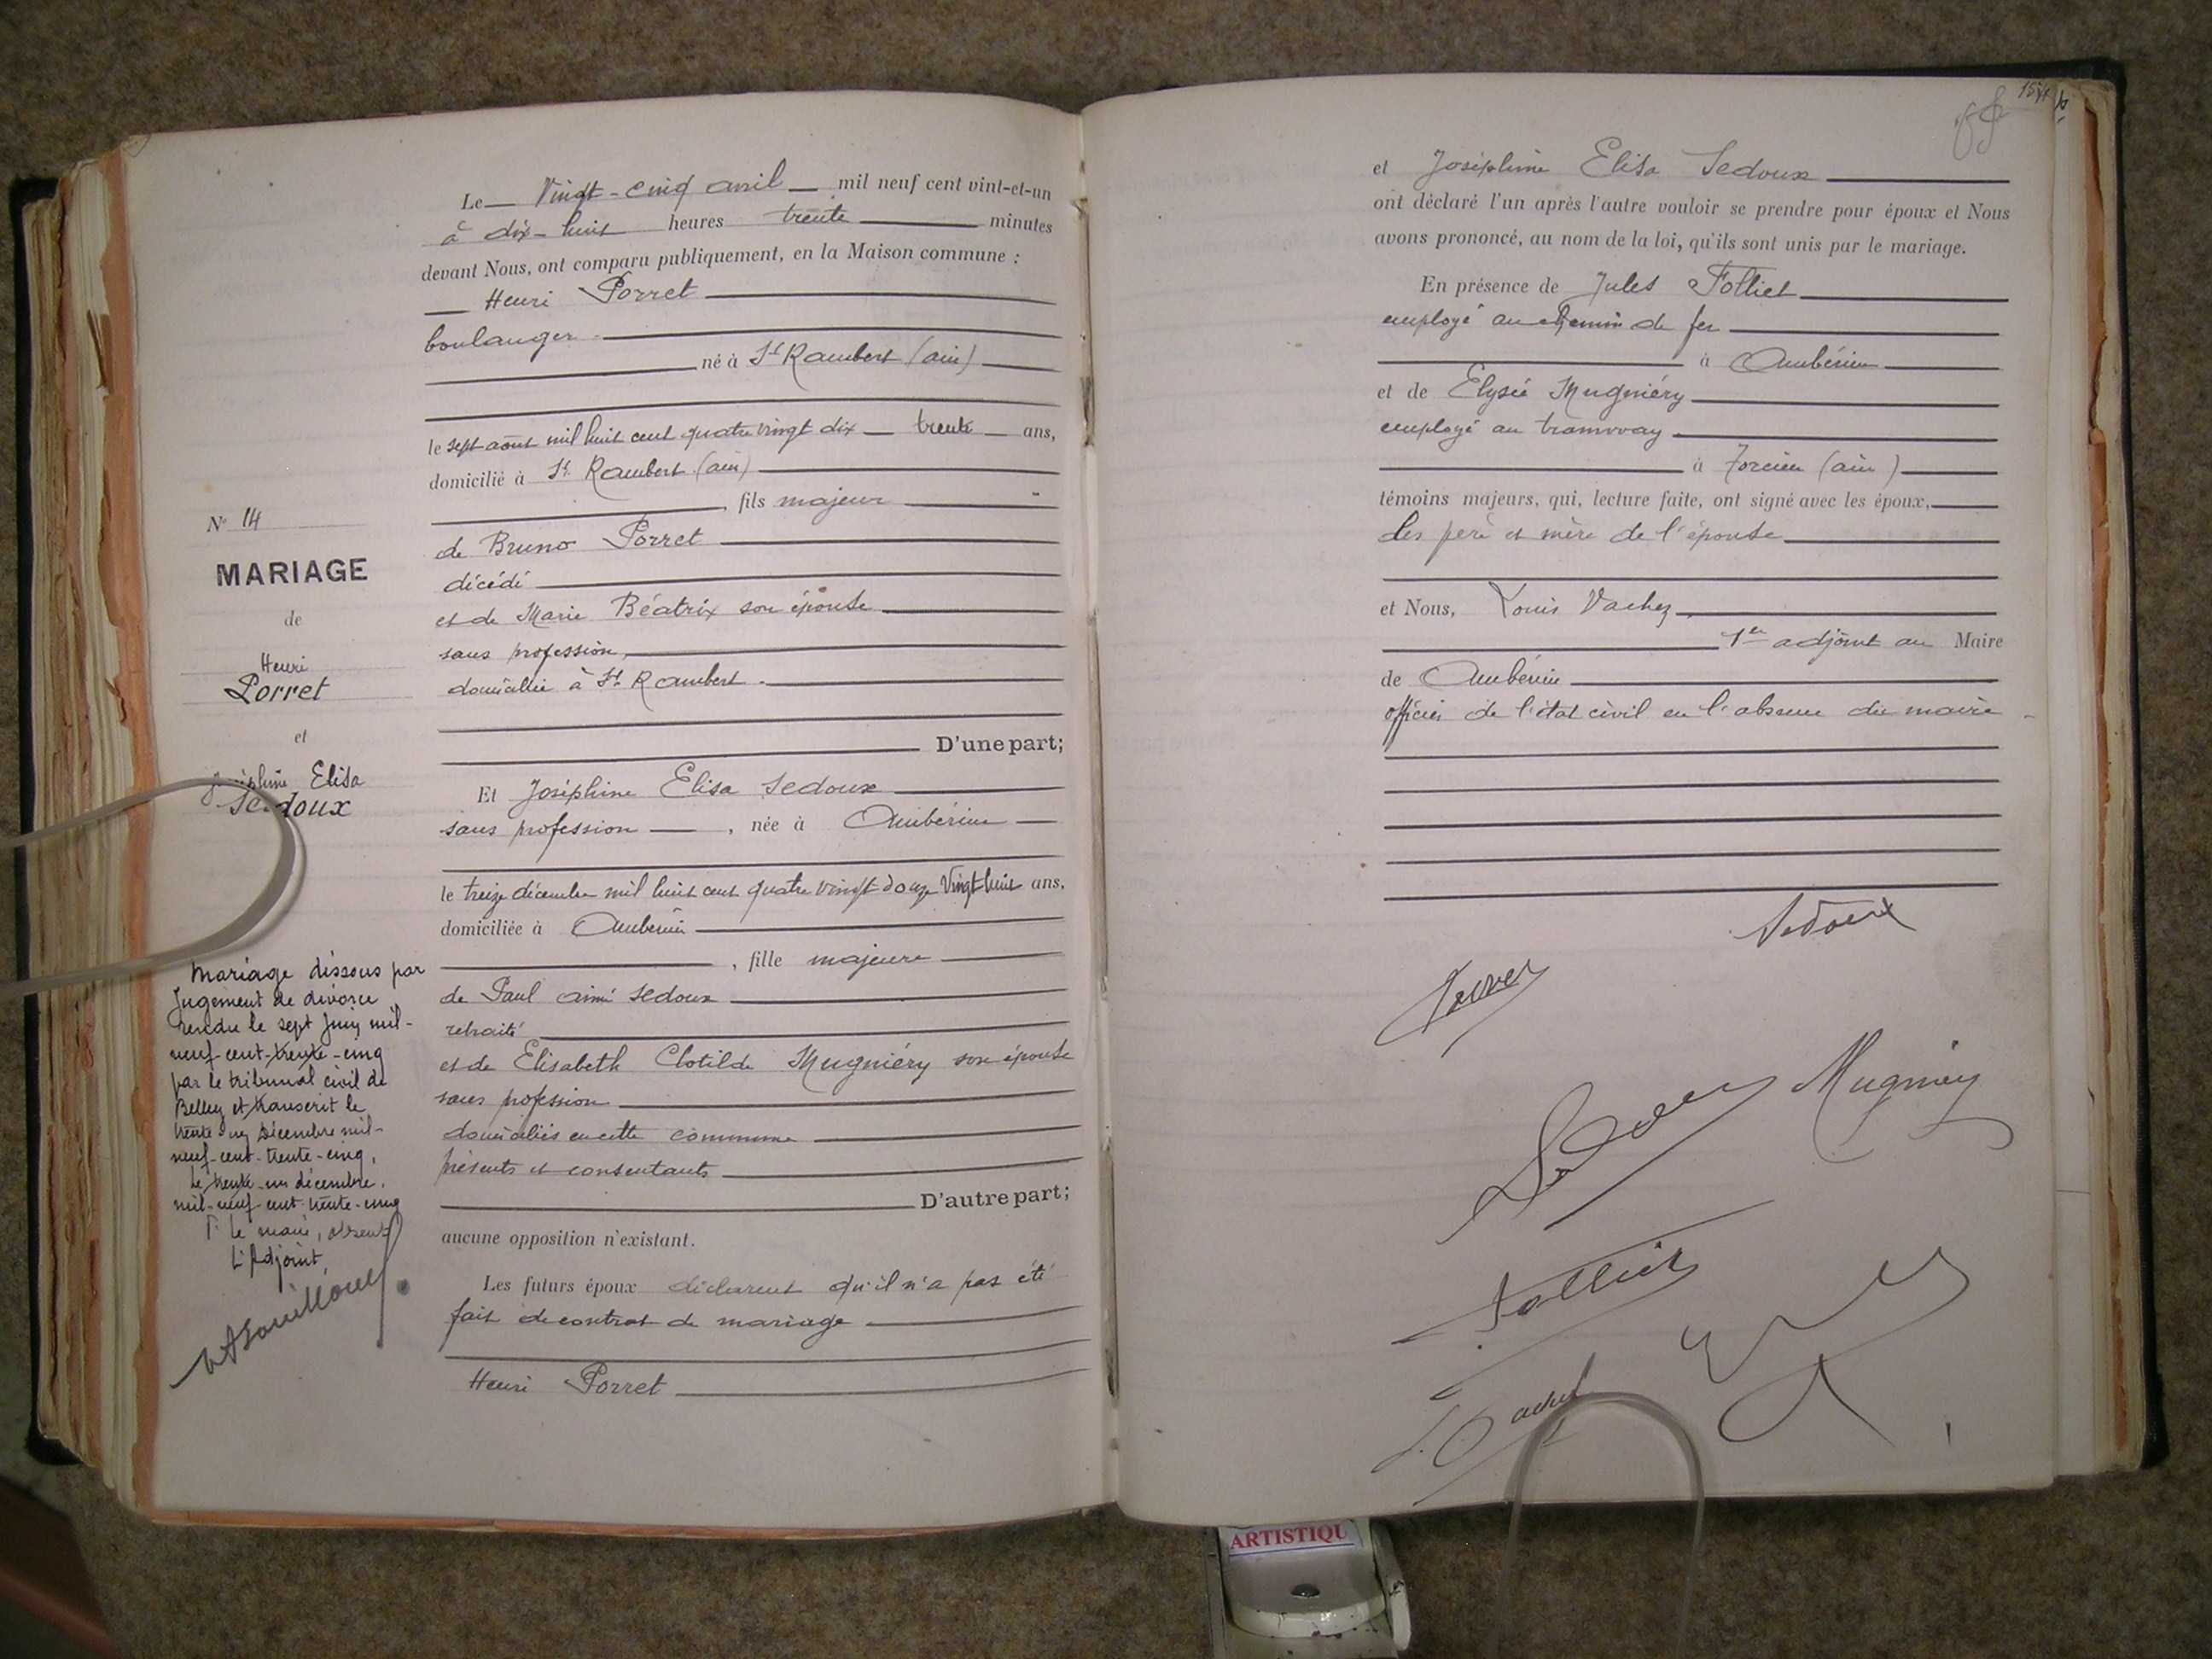 Le Vingt-cinq avril mil neuf cent vint-et-un
à dix-huit heures trente minutes
devant Nous, ont comparu publiquement, en la Maison commune :
Henri Porret
boulanger
né à St Rambert (ain)
le sept août mil huit cent quatre vingt dix trente ans,
domicilié à St Rambert (ain)
, fils majeur
de Bruno Porret
décédé
et de Marie Béatrix son épouse
sans profession
domiciliée à St Rambert
D'une part;
Et Joséphine Elisa Sedoux
sans profession , née à Ambérieu
le treize décembre mil huit cent quatre vingt douze Vingt huit ans,
domiciliée à Ambérieu
, fille majeure
de Paul aimé Sedoux
retraité
et de Elisabeth Clotilde Mugniéry son épouse
sans profession
domiciliés en cette commune
présents et consentants
D'autre part;
aucune opposition n'existant.
Les futurs époux déclarent qu'il n'a pas été
fait de contrat de mariage
Henri Porret
N° 14
MARIAGE
de
Henri
Porret
et
Joséphine Elisa
Sedoux
Mariage dissous par
Jugement de divorce
rendu le sept Juin mil-
neuf-cent-trente-cinq
par le tribunal civil de
Belley et transcrit le
trente un Décembre mil-
neuf-cent-trente-cinq.
Le trente-un décembre
mil-neuf-cent-trente-cinq
P. le maire, absent
L'Adjoint,
et Joséphine Elisa Sedoux
ont déclaré l'un après l'autre vouloir se prendre pour époux et Nous
avons prononcé, au nom de la loi, qu'ils sont unis par le mariage.
En présence de Jules Folliet
employé au chemin de fer
à Ambérieu
et de Elysée Mugniéry
employé au tramway
à Torcieu (ain)
témoins majeurs, qui, lecture faite, ont signé avec les époux,
les père et mère de l'épouse
et Nous, Louis Vachez
1er adjoint au Maire
de Ambérieu
officier de l'état civil en l'absence du maire
Sedoux
Porret
Sedoux Mugniéry
Folliet
L. Vachez
ARTISTIQU